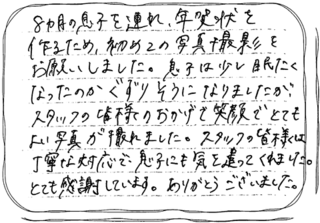 8ヵ月の息子を連れ、年賀状を
作るため、初めての写真撮影を
お願いしました。息子は少し眠たく
なったのかぐずりそうになりましたが、
スタッフの皆様のおかげで笑顔でとても
よい写真が撮れました。スタッフの皆様は
丁寧な対応で、息子にも気を遣ってくれました。
とても感謝しています。ありがとうございました。